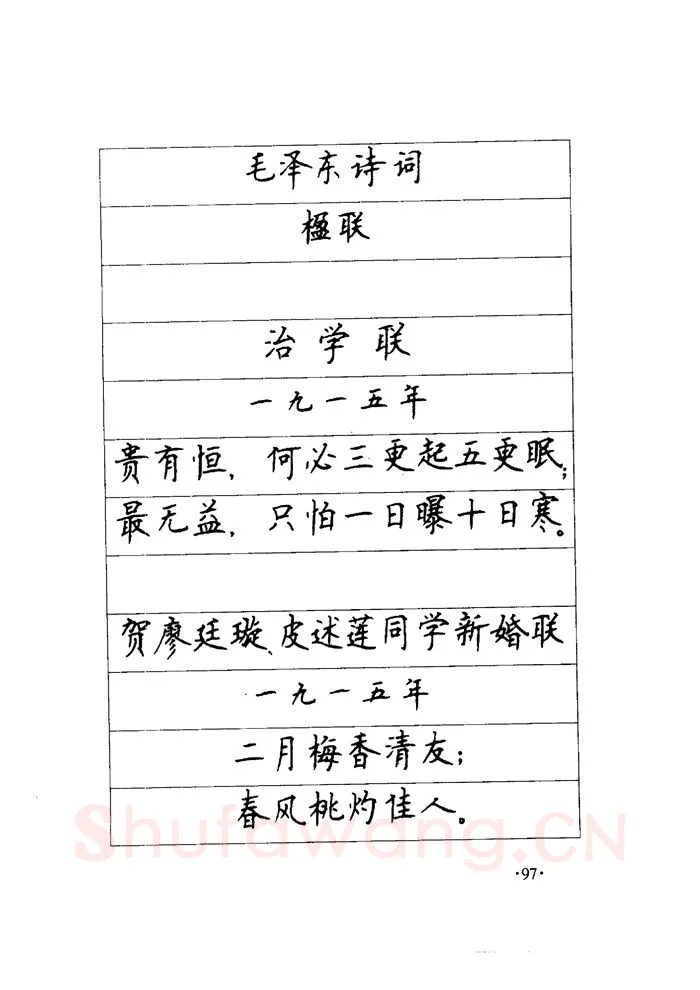 毛泽东诗词
楹联
治学联
一九一五年
贵有恒，何必三更起五更眠；
最无益，只怕一日曝十日寒。
贺廖廷璇、皮述莲同学新婚联
一九一五年
二月梅香清友；
春风桃灼佳人。
Shufawang.CN
·97·